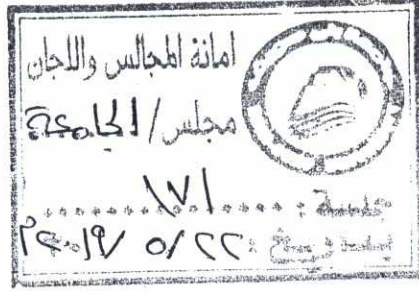 امانة المجالس واللجان
مجلس/الجامعة
جلسة: ١٧١
بتاريخ: ٢٢/٥/٢٠١٧م